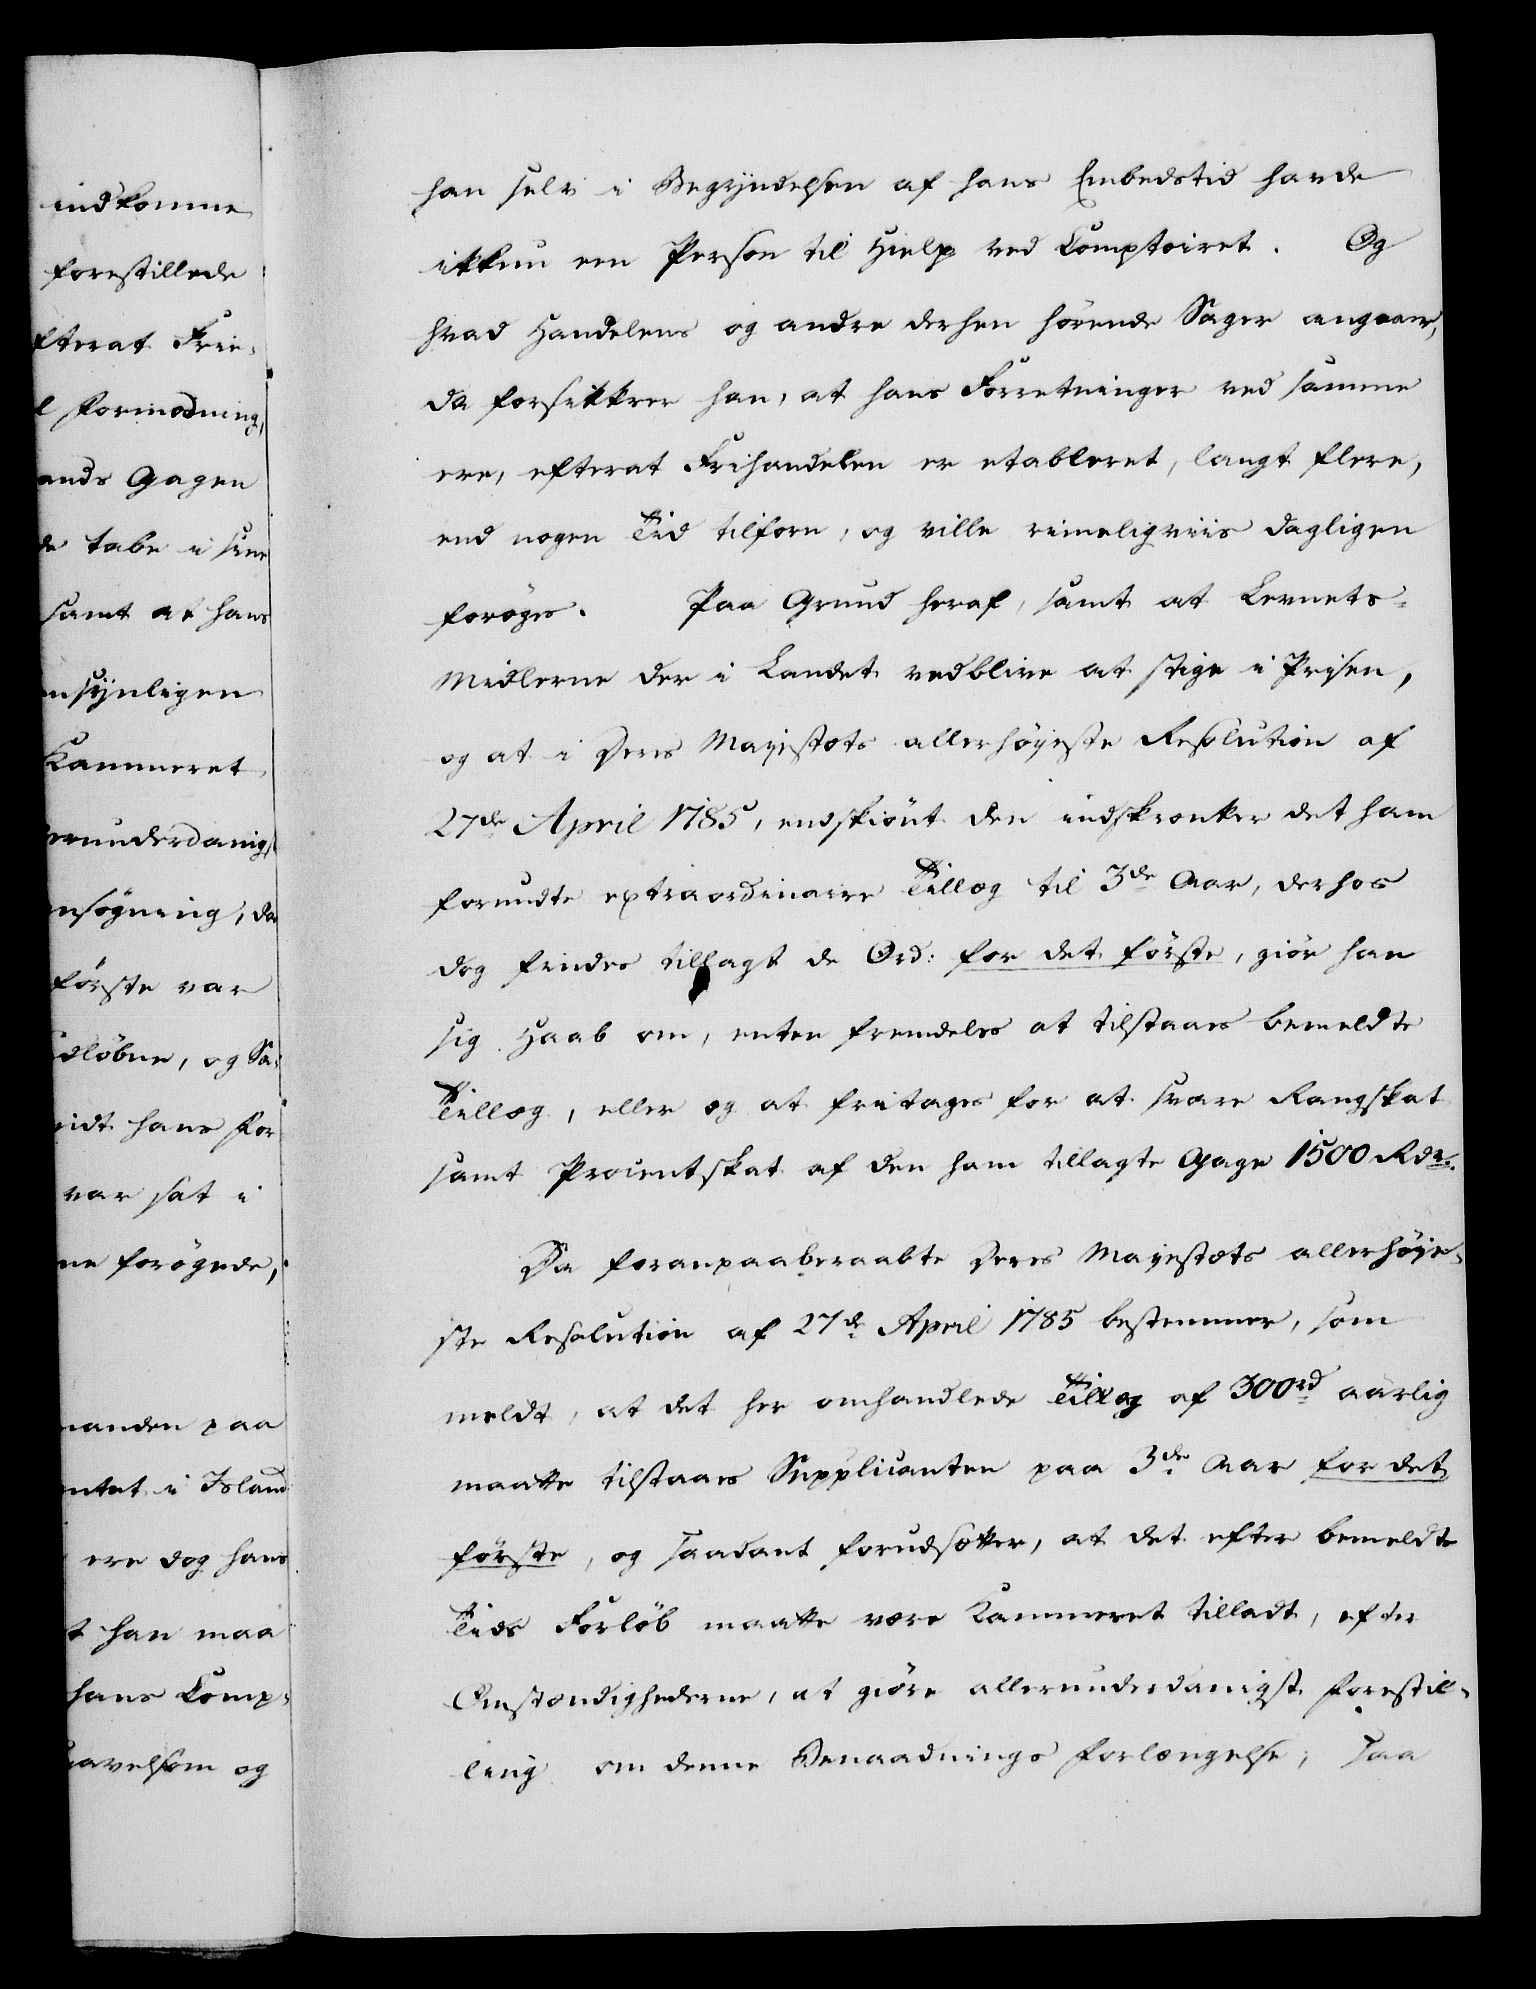 indkomne
forestillede
fterat Frie-
l Formodning,
ands Gagen
de tabe i sine
samt at hans
nsÿnligen
Kammeret
erunderdanig,
nsøgning, da
første var
dløbne, og Sa-
idt hans For
var sat i
ne forøgede,
manden paa
ntet i Island
ere dog hans
t han maa
hans Comp-
avelsom og
han selv i Begyndelsen af hans Embedstid havde
ikkun een Person til Hielp ved Comptoiret. Og
hvad Handelens og andre derhen hørende Sager angaaer,
da forsikkrer han, at hans Forretninger ved samme
ere, efterat Frihandelen er etableret, langt flere,
end nogen Tid tilforn, og ville rimeligviis dagligen
forøges. Paa Grund heraf, samt at Levnets-
Midlerne der i Landet vedblive at stige i Prisen,
og at i Deres Majestæts allerhøjeste Resolution af
27de April 1785, endskiønt den indskrænker det ham
forundte extraordinaire Tillæg til 3de Aar, derhos
dog findes tillagt de Ord: for det første, giør han
sig Haab om, enten fremdeles at tilstaaes bemeldte
Tillæg, eller og at fritages for at svare Rangskat
samt Procentskat af den ham tillagte Gage 1500 Rdr.
Da foranpaaberaabte Deres Majestæts allerhøje-
ste Resolution af 27de April 1785 bestemmer, som
meldt, at det her omhandlede Tillæg af 300rd aarlig
maatte tilstaaes Supplicanten paa 3de Aar for det
første, og saadant forudsætter, at det efter bemeldte
Tids Forløb maatte være Kammeret tilladt, efter
Omstændighederne, at giøre allerunderdanigst Forestil-
ling om denne Benaadnings Forlængelse; saa